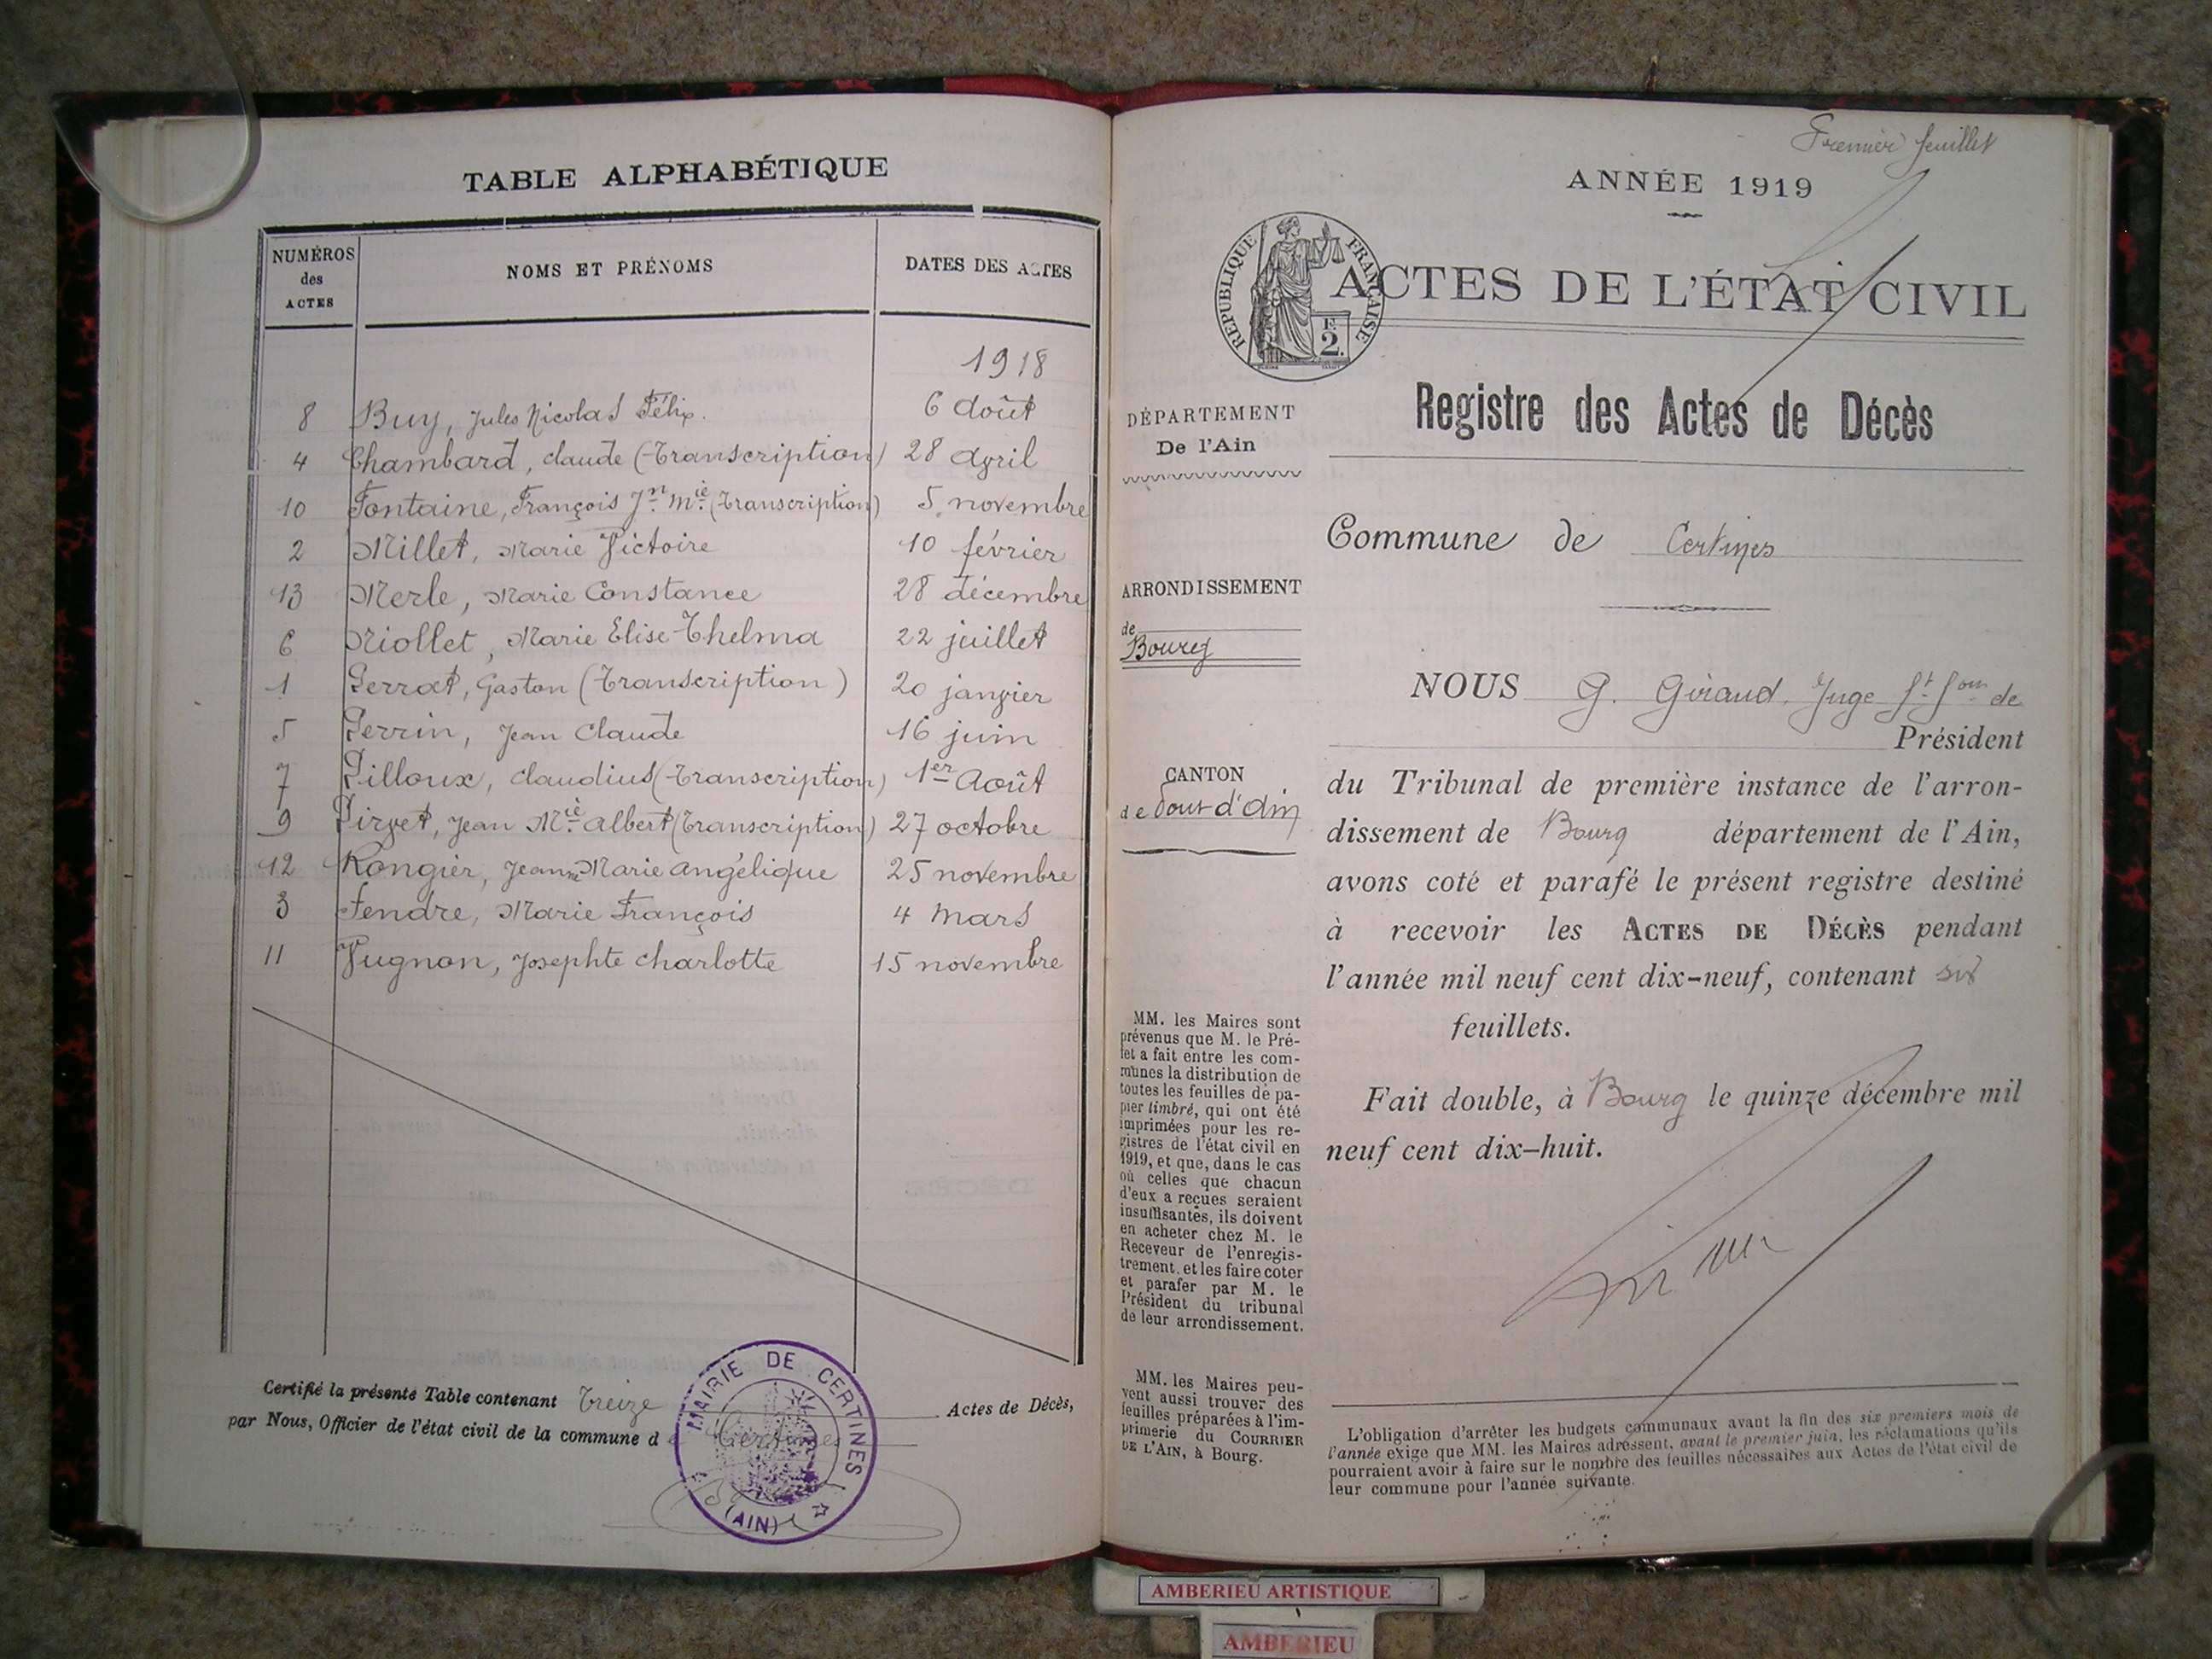 TABLE ALPHABÉTIQUE
NUMÉROS des ACTES
NOMS ET PRÉNOMS
DATES DES ACTES
1918
8 Buy, Jules Nicolas Félix. 6 Août
4 Chambard, Claude (Transcription) 28 Avril
10 Fontaine, François Jn Mie (Transcription) 5 novembre
2 Millet, Marie Victoire 10 février
13 Merle, Marie Constance 28 décembre
6 Niollet, Marie Elise Thelma 22 juillet
1 Perrat, Gaston (Transcription) 20 janvier
5 Perrin, Jean Claude 16 juin
7 Pilloux, Claudius (Transcription) 1er Août
9 Pirvet, Jean Mie Albert (Transcription) 27 octobre
12 Rongier, Jeanne Marie Angélique 25 novembre
3 Tendre, Marie François 4 Mars
11 Vugnon, Josephte Charlotte 15 novembre
Certifié la présente Table contenant Treize Actes de Décès,
par Nous, Officier de l'état civil de la commune de Certines
MAIRIE DE CERTINES
(AIN)
Premier feuillet
ANNÉE 1919
RÉPUBLIQUE FRANÇAISE
2
ACTES DE L'ÉTAT CIVIL
Registre des Actes de Décès
DÉPARTEMENT
De l'Ain
ARRONDISSEMENT
de
Bourg
CANTON
de Pont d'Ain
MM. les Maires sont
prévenus que M. le Pré-
fet a fait entre les com-
munes la distribution de
toutes les feuilles de pa-
pier timbré, qui ont été
imprimées pour les re-
gistres de l'état civil en
1919, et que, dans le cas
où celles que chacun
d'eux a reçues seraient
insuffisantes, ils doivent
en acheter chez M. le
Receveur de l'enregis-
trement, et les faire coter
et parafer par M. le
Président du tribunal
de leur arrondissement.
MM. les Maires peu-
vent aussi trouver des
feuilles préparées à l'im-
primerie du COURRIER
DE L'AIN, à Bourg.
Commune de Certines
NOUS G. Giraud, Juge de
Président
du Tribunal de première instance de l'arron-
dissement de Bourg département de l'Ain,
avons coté et parafé le présent registre destiné
à recevoir les ACTES DE DÉCÈS pendant
l'année mil neuf cent dix-neuf, contenant six
feuillets.
Fait double, à Bourg le quinze décembre mil
neuf cent dix-huit.
L'obligation d'arrêter les budgets communaux avant la fin des six premiers mois de
l'année exige que MM. les Maires adressent, avant le premier juin, les réclamations qu'ils
pourraient avoir à faire sur le nombre des feuilles nécessaires aux Actes de l'état civil de
leur commune pour l'année suivante.
AMBERIEU ARTISTIQUE
AMBERIEU